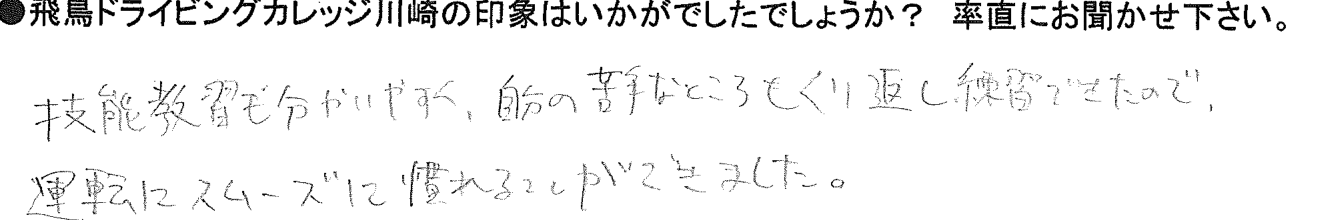 ●飛鳥ドライビングカレッジ川崎の印象はいかがでしたでしょうか？ 率直にお聞かせ下さい。
技能教習も分かりやすく、自分の苦手なところもくり返し練習できたので、
運転にスムーズに慣れることができました。